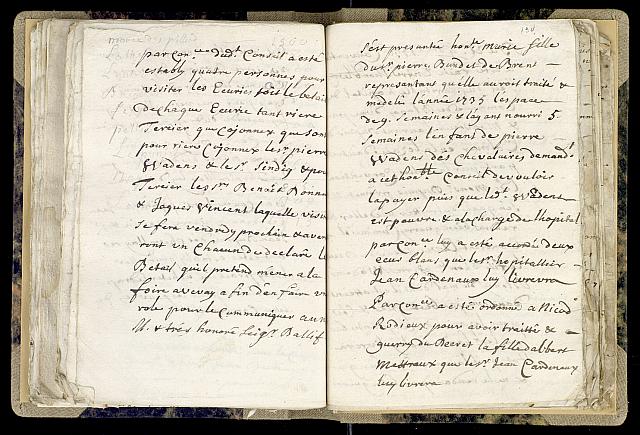 par Con.ce dud.t Conseil a esté
estably quatre personnes pour
visiter les Ecuries soit le betail
de chaque Ecurie tant riere
Tercier que Cojonnex que sont
pour riere Cojonnex les.r pierre
Wadens & le S.r Sindiq & pour
Tercier les S.rs Benoit Bonna
& Jaques Vincent laquelle visite
se fera vendredy prochain & aver
ront un Chacun de declaré le
Betail quil pretend mener a la
foire a vevay a fin d'en faire un
role pour le Communiquer au n
N. & tres honoré seig.r Ballif
130.
S'est presentée hon.te marie fille
du S.r pierre Budet de Brent
representant qu'elle auroit traité &
medeli l'année 1735 l'espace
de 9. semaines & l'ayant nourri 5
semaines l'enfant de pierre
Wadens des Chevalaires demand.t
a cet hon.ble Conseil de vouloir
la payer puis que led.t Wadens
est pauvre & a la charge de l'hopital
par Con.ce luy a esté accordé deux
ecus blans que le S.r hopitallier
Jean Cardenaux luy livrera
Par Con.ce a esté ordonné a Nicod
Rodieux pour avoir traitté &
guerry du Becret la fille d'albert
Mettraux que le S.r Jean Cardenaux
luy livrera